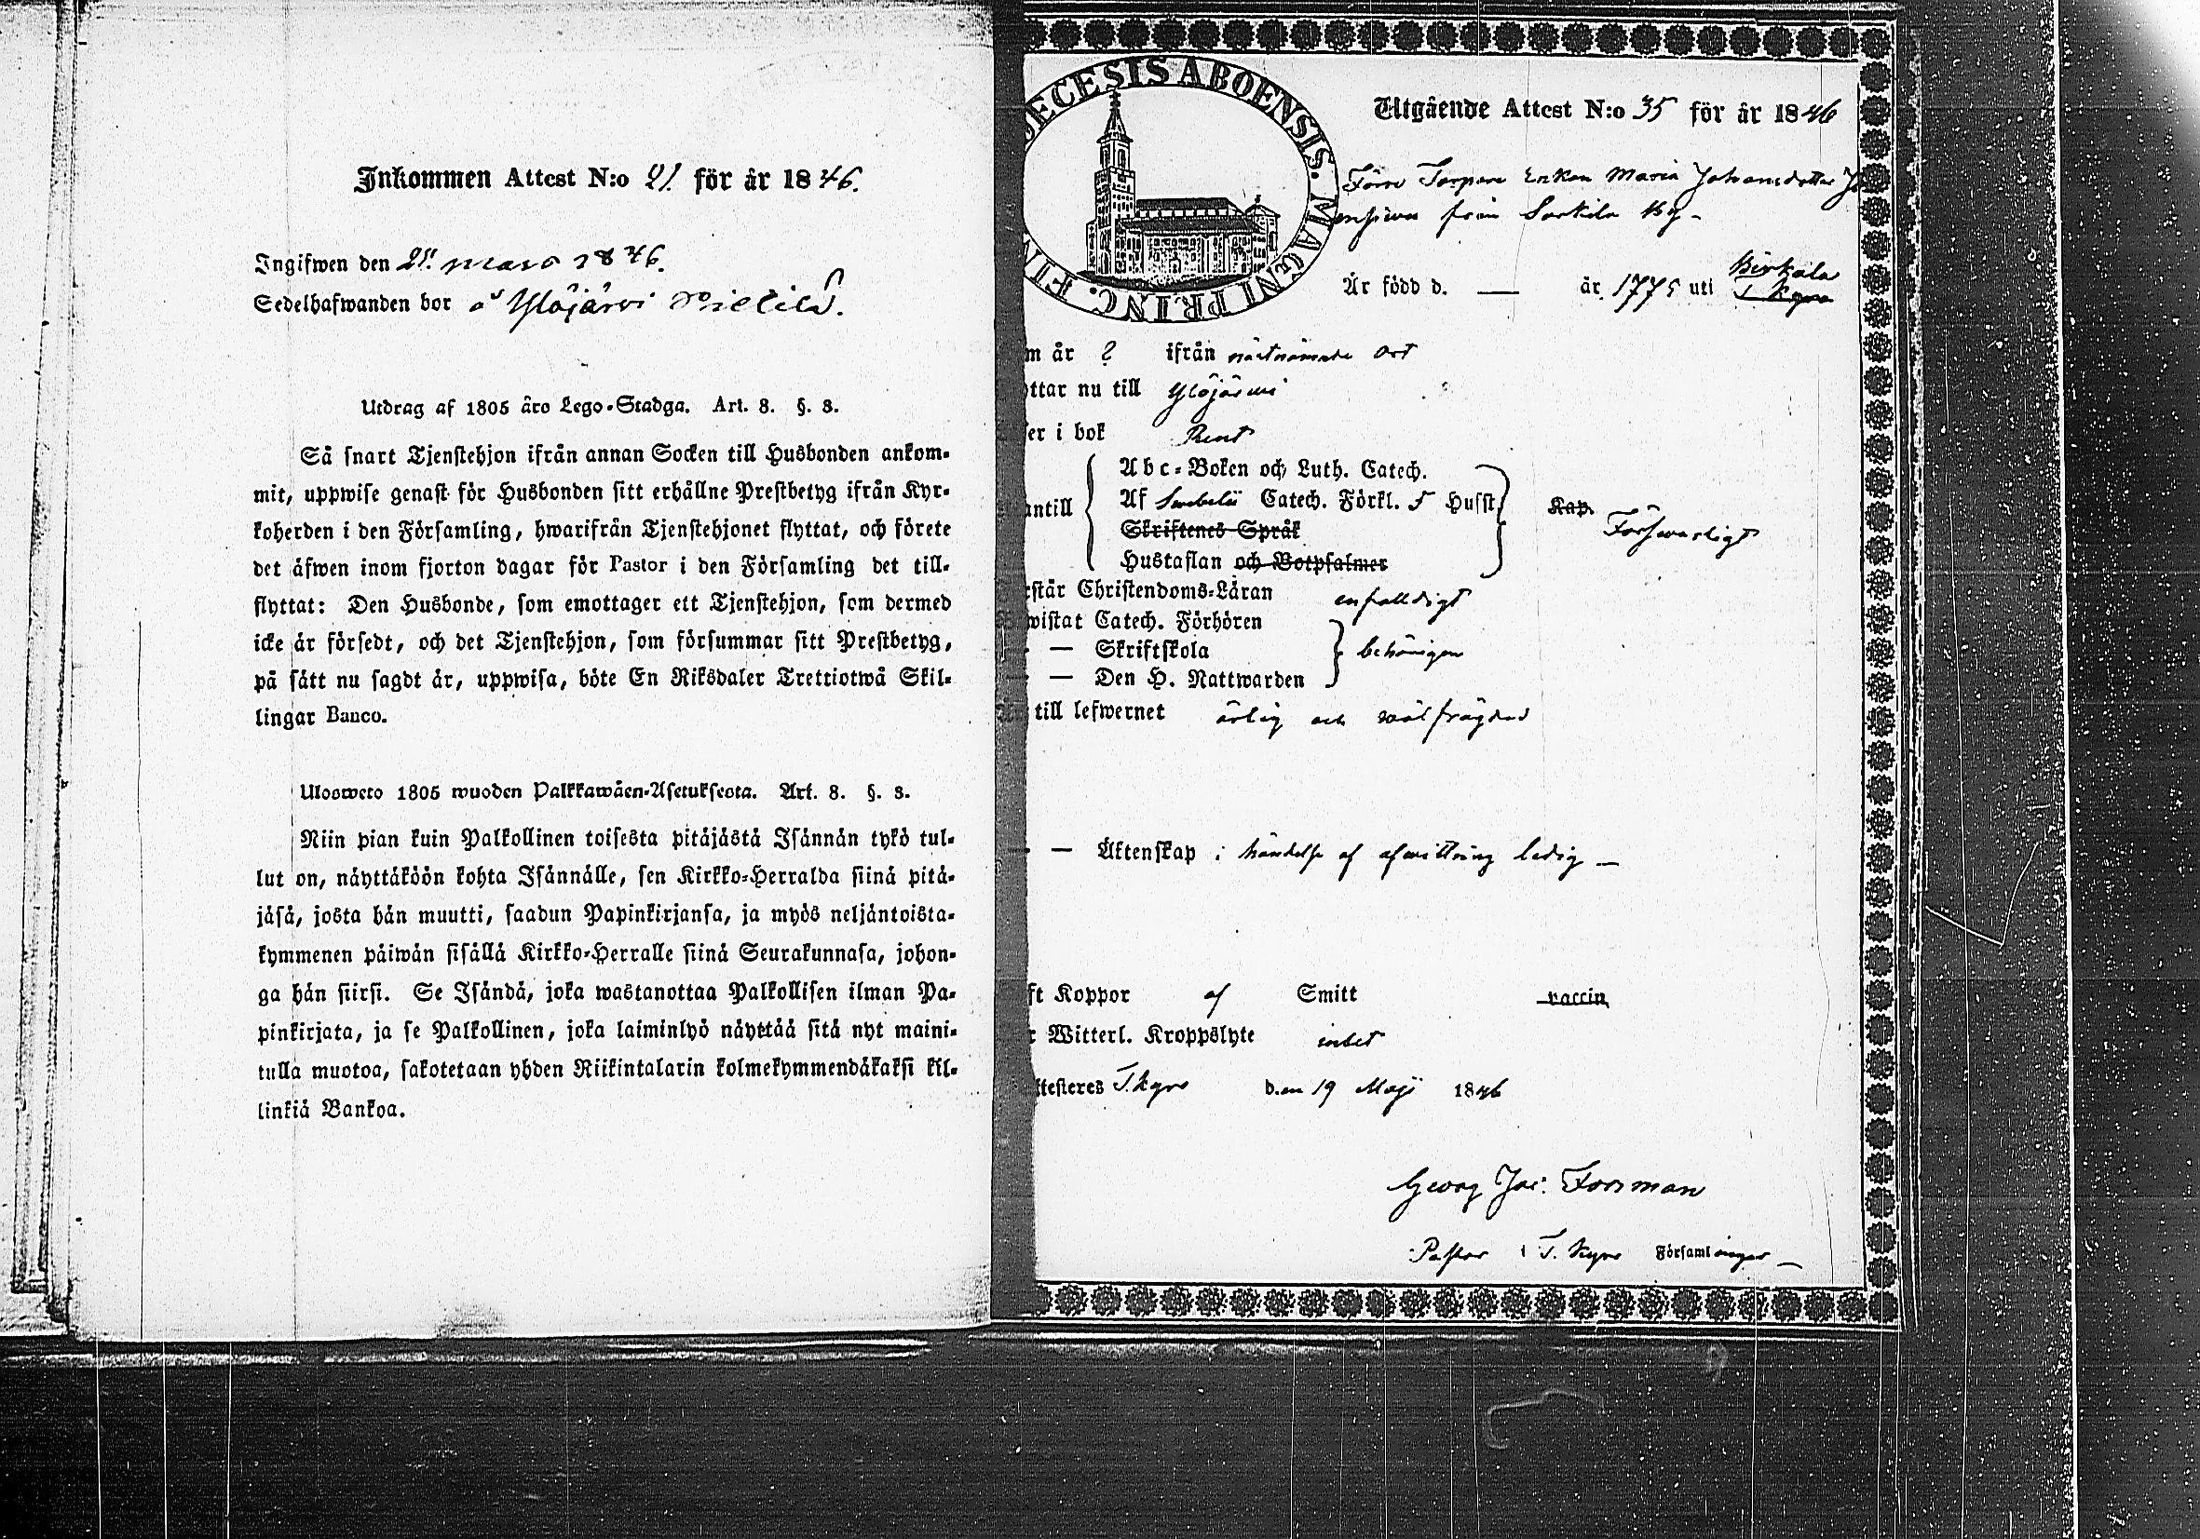 Inkommen Attest N:o 21. för år 1846.
Ingifwen den 1846.
Sedelhafwanden bor Ylöjärvi
Utdrag af 1805 års Lego-Stadga. Art. 8. §. 3.
Så snart Tjenstehjon ifrån annan Socken till Husbonden ankom-
mit, uppwise genast för Husbonden sitt erhållne Prestbetyg ifrån Kyr-
koherden i den Församling, hwarifrån Tjenstehjonet flyttat, och förete
det äfwen inom fjorton dagar för Pastor i den Församling det till-
flyttat: Den Husbonde, som emottager ett Tjenstehjon, som dermed
icke är försedt, och det Tjenstehjon, som försummar sitt Prestbetyg,
på sätt nu sagdt är, uppwisa, böte En Riksdaler Trettiotwå Skil-
lingar Banco.
Ulosweto 1805 wuoden Palkkawäen-Asetuksesta. Art. 8. §. 3.
Niin pian kuin Palkollinen toisesta pitäjästä Isännän tykö tul-
lut on, näyttäköön kohta Isännälle, sen Kirkko-Herralda siinä pitä-
jäsä, josta hän muutti, saadun Papinkirjansa, ja myös neljäntoista-
kymmenen päiwän sisällä Kirkko-Herralle siinä Seurakunnasa, johon-
ga hän siirsi. Se Isändä, joka wastanottaa Palkollisen ilman Pa-
pinkirjata, ja se Palkollinen, joka laiminlyö näyttää sitä nyt maini-
tulla muotoa, sakotetaan yhden Riikintalarin kolmekymmendäkaksi kil-
linkiä Bankoa.
ECESIS ABOENSIS. MAGNI PRINC. FIN
Utgående Attest N:o 35 för år 1846
Förre Torpare Enkan Maria Johansdotter
från Sarkila By
Är född d. — år 1775 uti Birkala
T. Kyro
m år ? ifrån nästnämnde ort
ttar nu till Ylöjärwi
er i bok Rent
Abc-Boken och Luth. Catech.
antill Af Swebelii Catech. Förkl. 5 Hufst. Kap. Förswarligt
Skriftenes Språk
Hustaflan och Botpsalmer
rstår Christendoms-Läran enfalldigt
wistat Catech. Förhören
— Skriftskola behörigen
— Den H. Nattwarden
till lefwernet ärlig och wälfrägdad
— — Äktenskap i händelse af afwittring ledig —
ft Koppor af Smitt vaccin.
r Witterl. Kroppslyte intet
ttesteres T. Kyro den 19 Maji 1846
Georg Jac: Forsman
Pastor i T. Kyro Församlingar —